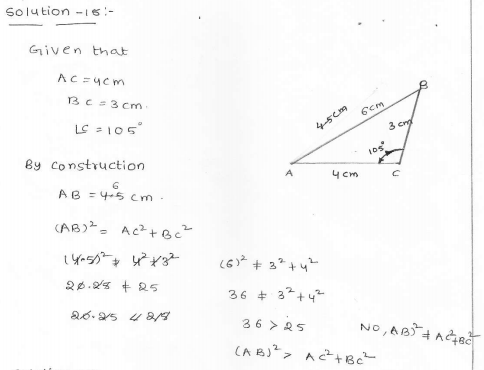 Solution -15:-
Given that
AC = 4cm
BC = 3cm.
∠C = 105°
By construction
AB = 4.5 6 cm.
(AB)² = AC² + BC²
(4.5)² ≠ 4² + 3²
20.25 ≠ 25
20.25 < 25
(6)² ≠ 3² + 4²
36 ≠ 3² + 4²
36 > 25
(AB)² > AC² + BC²
NO, AB)² ≠ AC² + BC²
B
4.5cm
6cm
3cm
105°
A
4cm
C